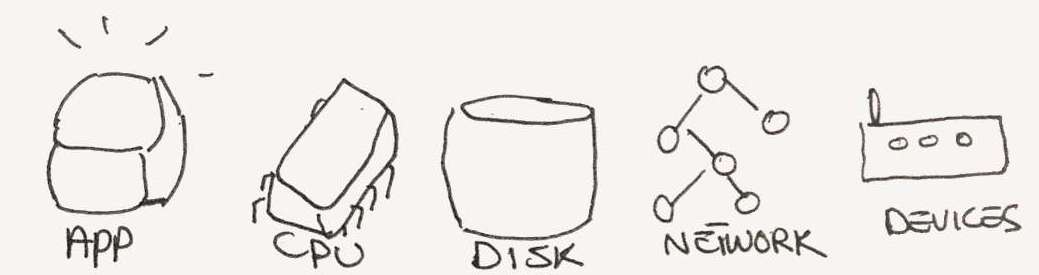 APP CPU DISK NETWORK DEVICES